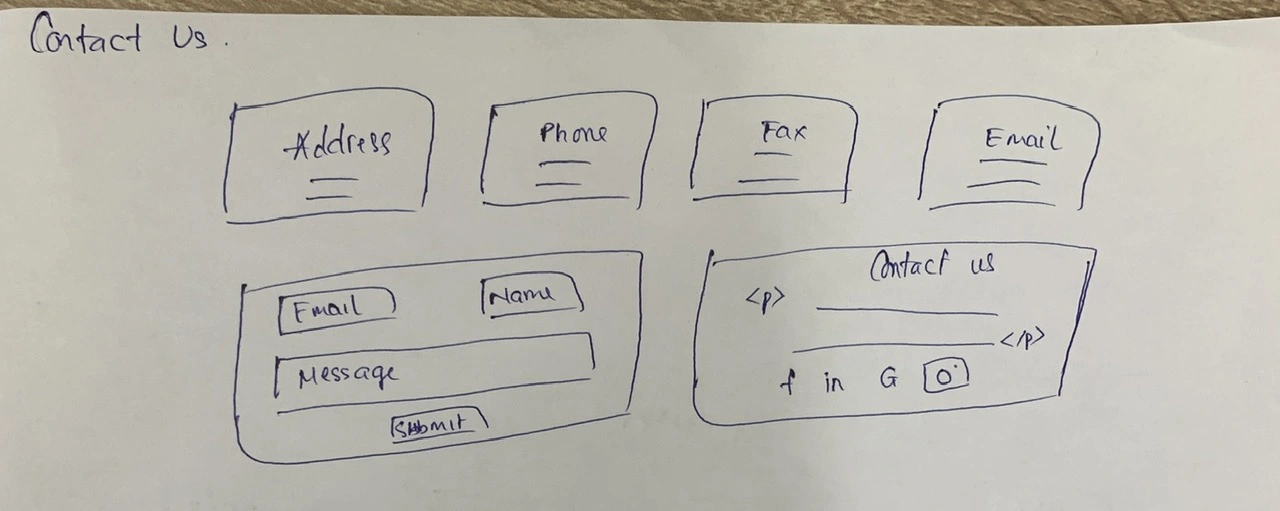 Contact Us.
Address
Phone
Fax
Email
Email
Name
Message
Submit
Contact us
<p>
</p>
f in G